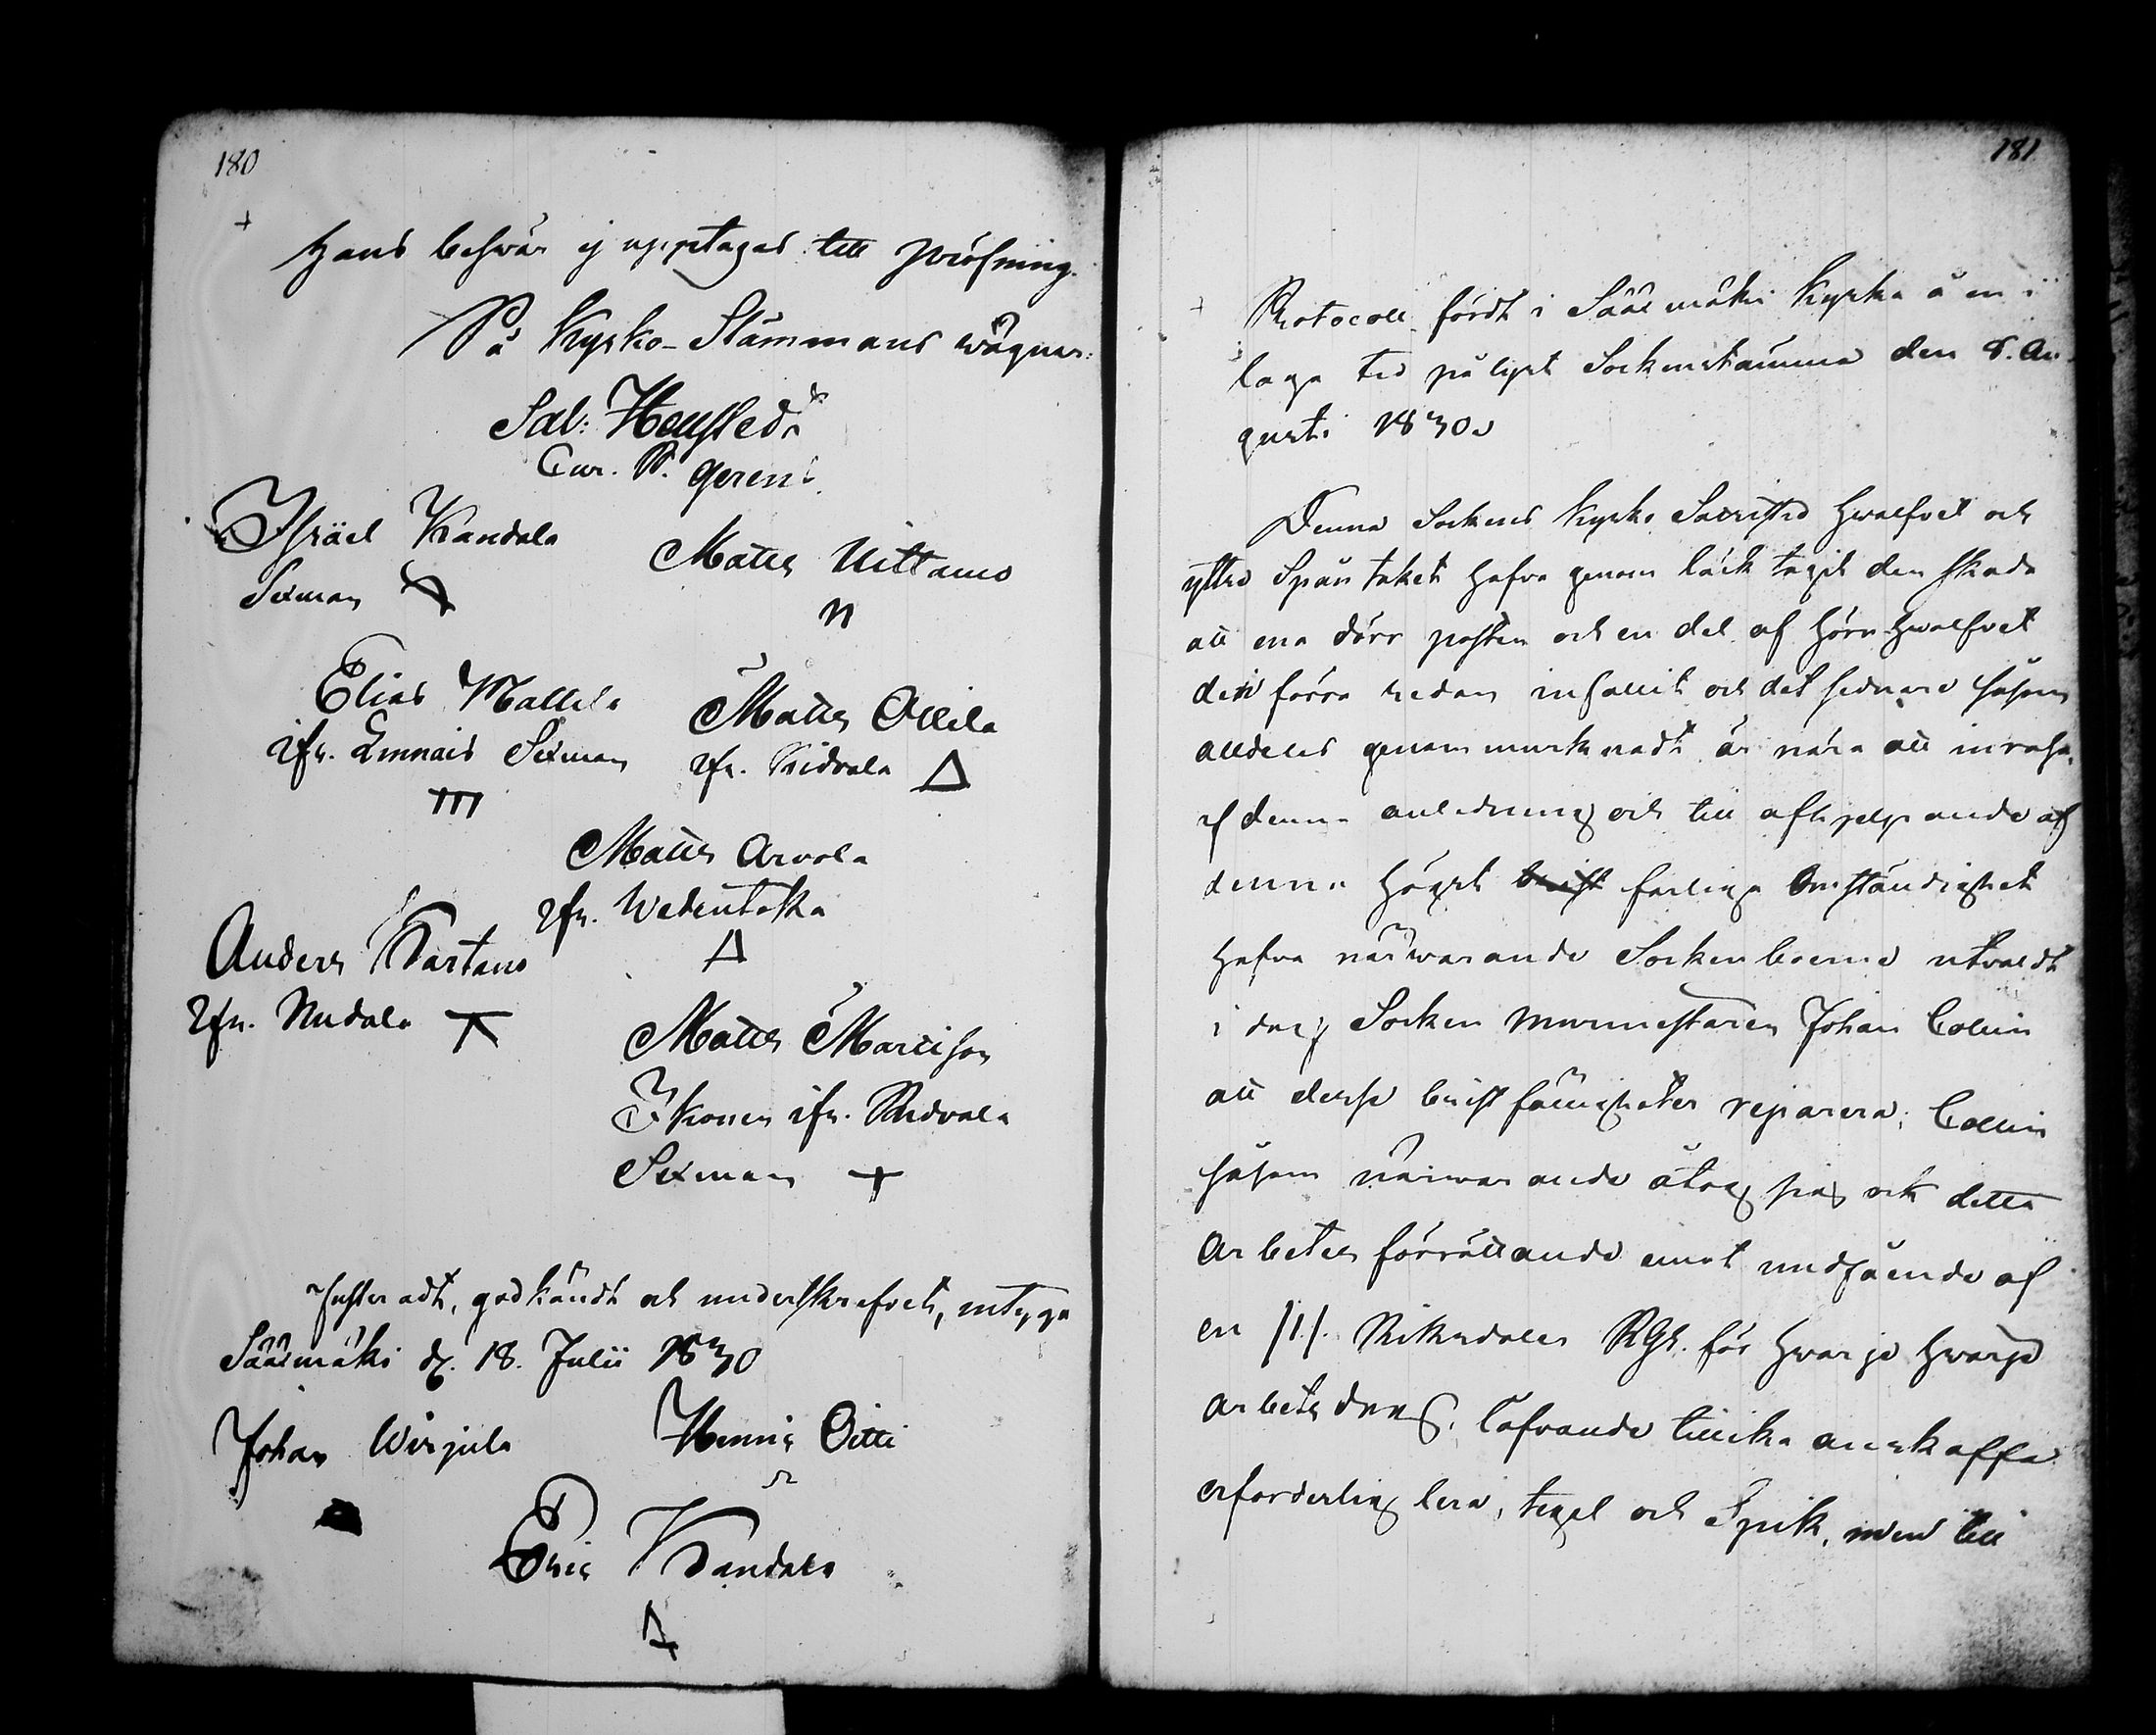 180
Hans beswär ej upptages till pröfning.
På Kyrko-Stämmans wägnar:
Sal: Hellstedt
Cur. P. gerens.
Isräel Kandola
Sexman
Matts Uittamo
n
Elias Mattila
ifr. Sexman
m
Matts Ollila
ifr. Ridvala
Matts Arvola
ifr. Wedentaka
Anders Kartano
ifr.
Matts Mattsson
Ikonen ifr. Ridvala
Sexman +
Justeradt, godkändt och underskrefvet, intyga
Sääxmäki d. 18. Julii 1830
Johan Wirjula
Henric Oitti
Eric Kandola
181
Protocoll fördt i Sääxmäki Kyrka å en i
laga tid pålyst Sockenstämma den 8. Au-
gusti 1830.
Denna Sockens Kyrko Sacristie hwalfvet och
yttre Spån taket hafva genom läck tagit den skada
att ena dörr posten och en del af hörn hwalfvet
den förra redan infallit och det sednare såsom
alldeles genom murknadt är nära att inrasa,
af denna anledning och till afhjelpande af
denna högst farliga Omständighet
hafva närwarande Sockenboerne utvaldt
i dag Socken Murmestaren Johan Collin
att desse bristfälligheter reparera; Collin
såsom närwarande åtog sig ock detta
Arbetes förrättande emot undfående af
en /1/. Riksdaler RGS. för hwarje hwarje
arbets dag, lofvande tillika anskaffa
erforderlig lera, tegel och Spik, men till